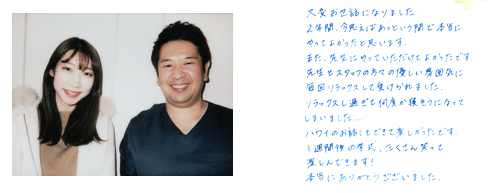 大変お世話になりました
2年間、今思えばあっという間で本当に
やってよかったと思います。
また、先生にやっていただけてよかったです。
先生とスタッフの方々の優しい雰囲気に
毎回リラックスして受けられました。
リラックスし過ぎて何度か寝そうになって
しまいました…
ハワイのお話しもできて楽しかったです。
1週間後の挙式、たくさん笑って
楽しんできます!
本当にありがとうございました。